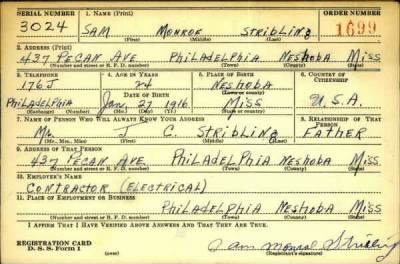 SERIAL NUMBER 1. NAME (Print) ORDER NUMBER
3024 SAM MONROE STRIBLING 1699
(First) (Middle) (Last)
2. ADDRESS (Print)
437 PECAN AVE PHILADELPHIA NESHOBA MISS
(Number and street or R. F. D. number) (Town) (County) (State)
3. TELEPHONE 4. AGE IN YEARS 5. PLACE OF BIRTH 6. COUNTRY OF CITIZENSHIP
176J 24 NESHOBA
DATE OF BIRTH (Town or county)
PHILADELPHIA JAN. 27 1916 MISS U.S.A.
(Exchange) (Number) (Mo.) (Day) (Yr.) (State or country)
7. NAME OF PERSON WHO WILL ALWAYS KNOW YOUR ADDRESS 8. RELATIONSHIP OF THAT PERSON
MR. J C. STRIBLING FATHER
(Mr., Mrs., Miss) (First) (Middle) (Last)
9. ADDRESS OF THAT PERSON
437 PECAN AVE. PHILADELPHIA NESHOBA MISS
(Number and street or R. F. D. number) (Town) (County) (State)
10. EMPLOYER'S NAME
CONTRACTOR (ELECTRICAL)
11. PLACE OF EMPLOYMENT OR BUSINESS
PHILADELPHIA NESHOBA MISS
(Number and street or R. F. D. number) (Town) (County) (State)
I AFFIRM THAT I HAVE VERIFIED ABOVE ANSWERS AND THAT THEY ARE TRUE.
REGISTRATION CARD
D. S. S. Form 1 (over) Sam Monroe Stribling
(Registrant's signature)